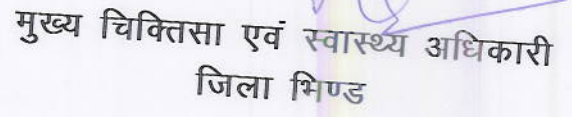 मुख्य चिक्तिसा एवं स्वास्थ्य अधिकारी
जिला भिण्ड